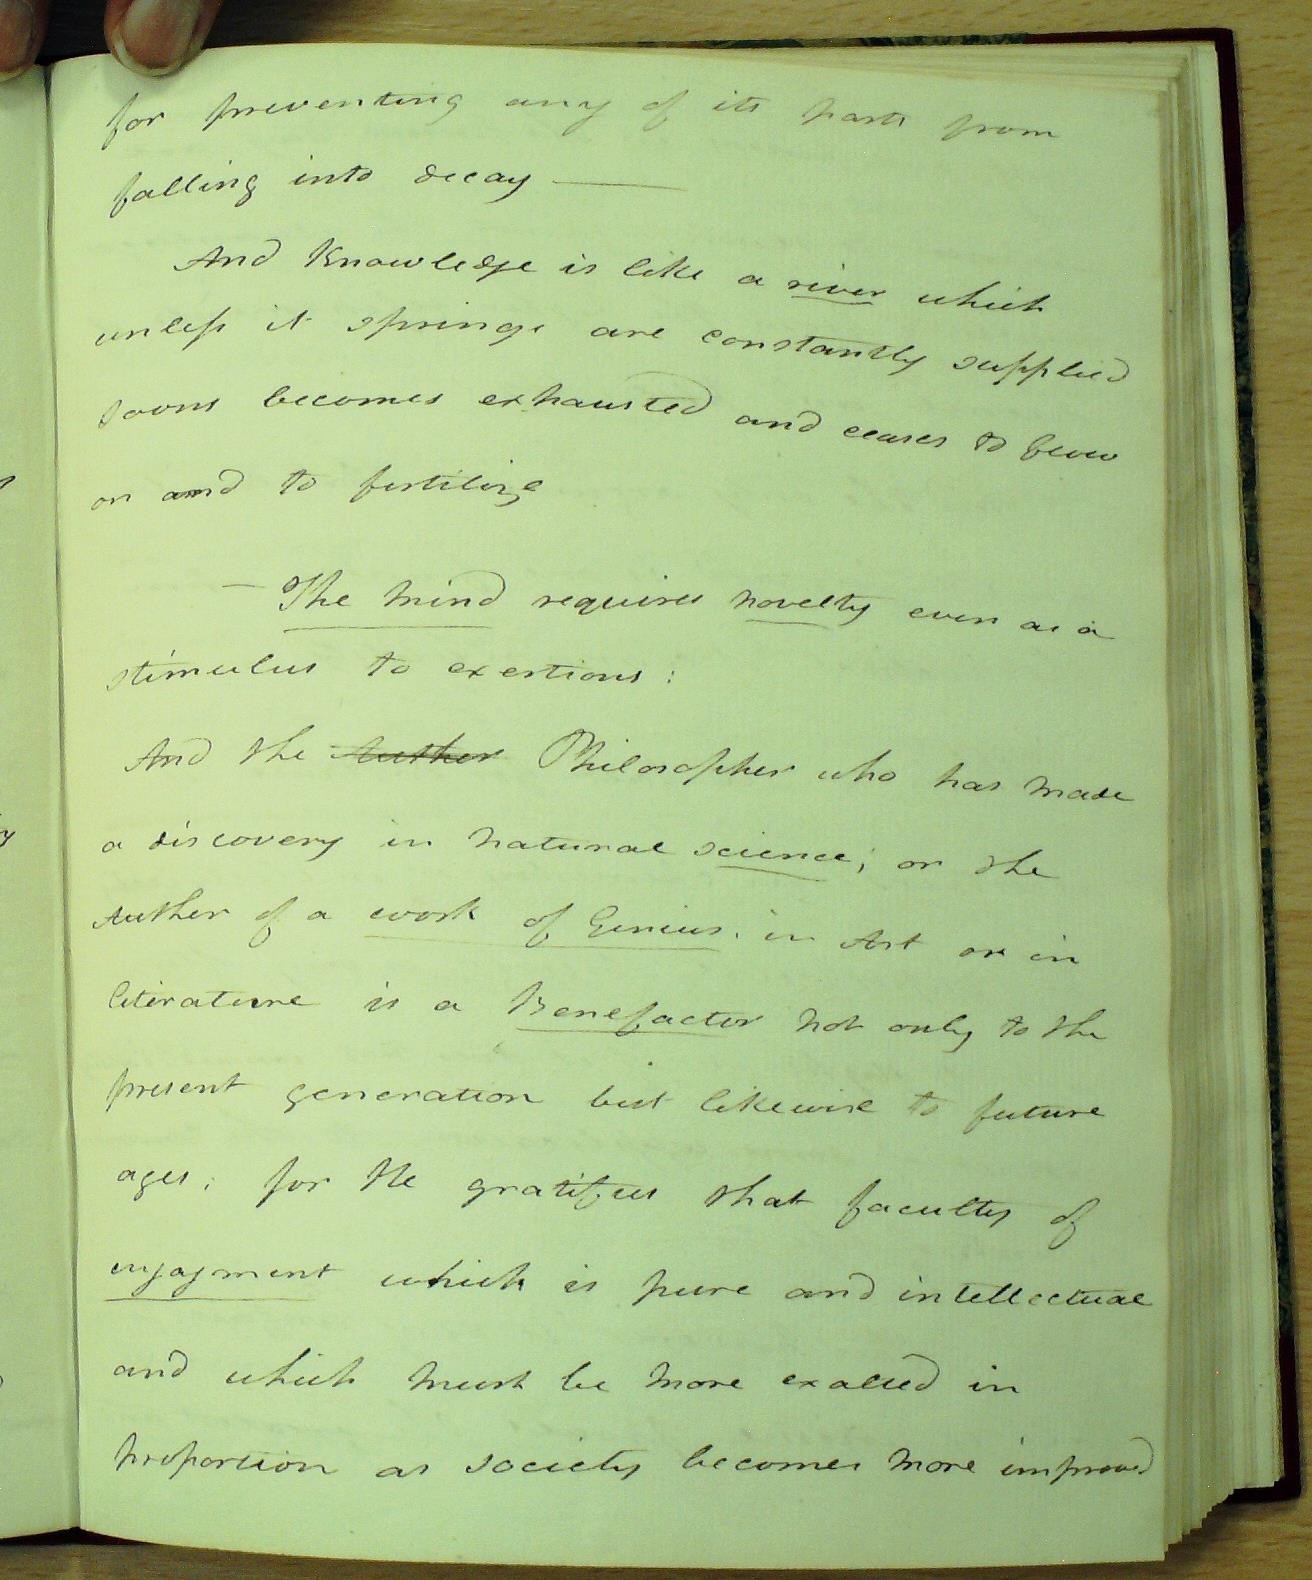 for preventing any of its parts from
falling into decay —
And Knowledge is like a river which
unless it springs are constantly supplied
soons becomes exhausted and ceases to flow
on and to fertilize
— The mind requires novelty even as a
stimulus to exertions :
And the Auther Philosopher who has made
a discovery in natural science; or the
Auther of a work of Genius. in Art or in
literature is a Benefactor not only to the
present generation but likewise to future
ages; for He gratifies that faculty of
enjoyment which is pure and intellectual
and which must be more exalted in
proportion as society becomes more improved